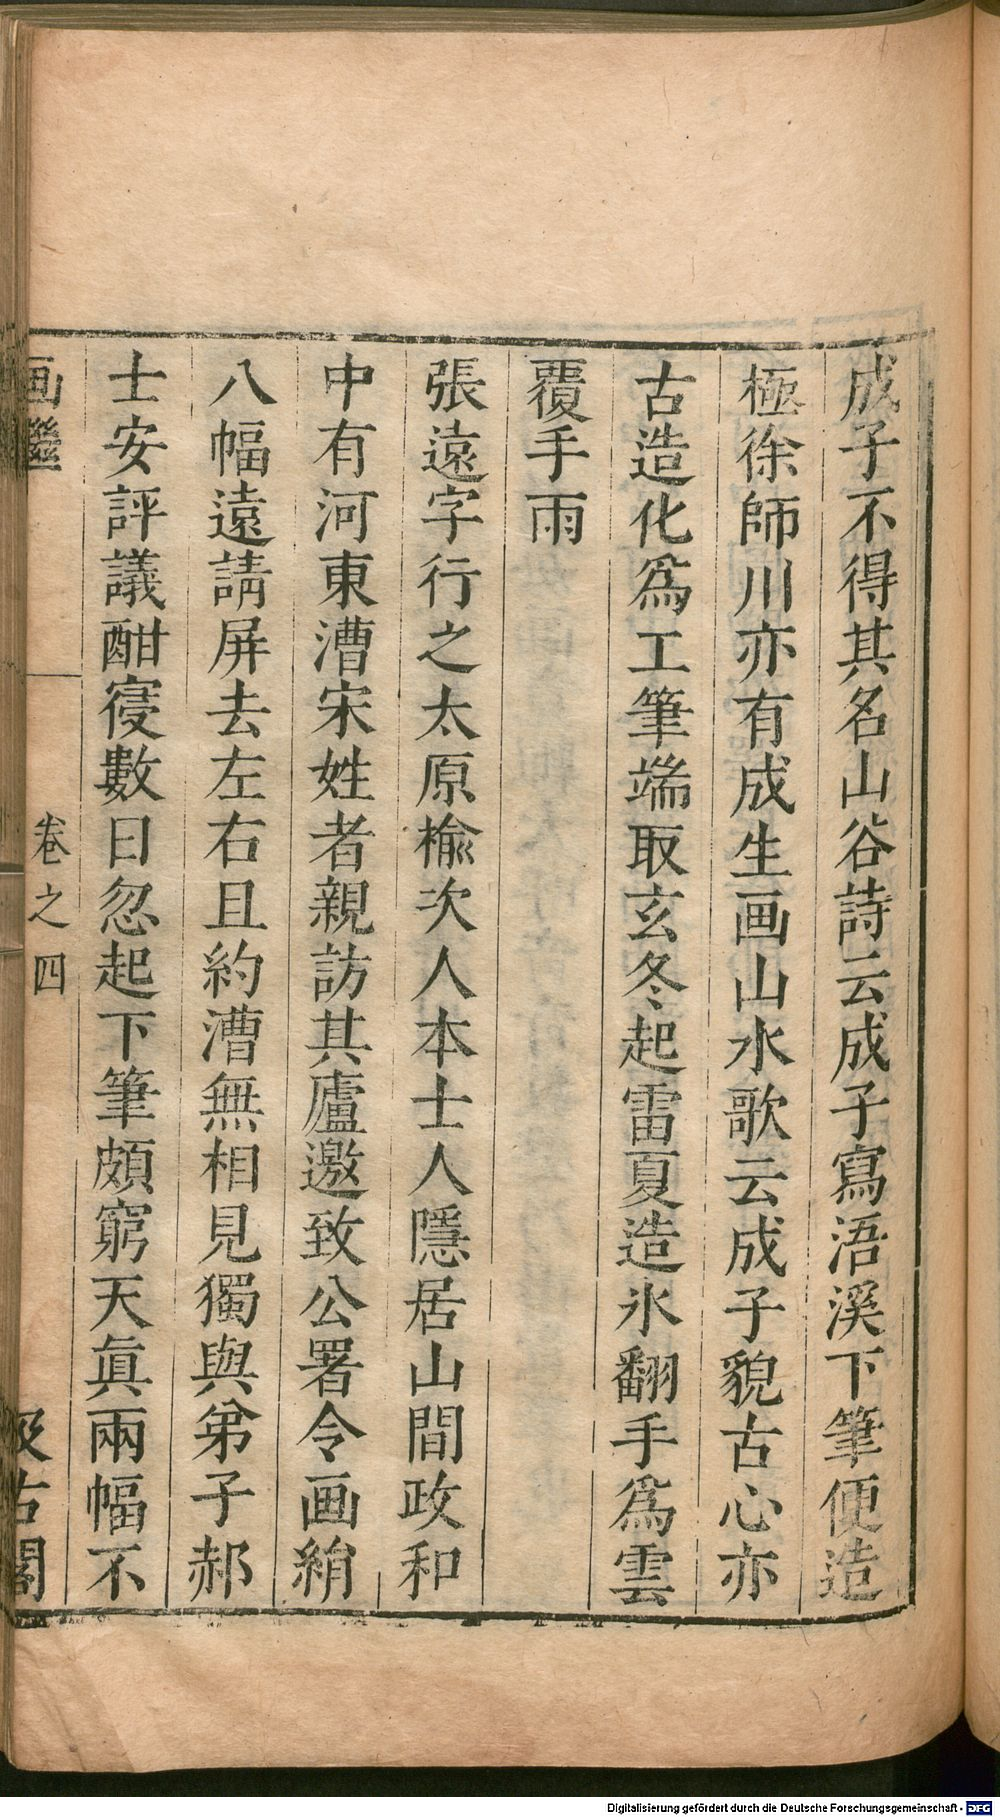 成子不得其名山谷詩云成子寫浯溪下筆便造
極徐師川亦有成生画山水歌云成子貌古心亦
古造化爲工筆端取玄冬起雷夏造氷翻手爲雲
覆手雨
張遠字行之太原榆次人本士人隱居山間政和
中有河東漕宋姓者親訪其廬邀致公署令画綃
八幅遠請屏去左右且約漕無相見獨與弟子郝
士安評議酣寑數日忽起下筆頗窮天眞兩幅不
画繼 卷之四 汲古閣
Digitalisierung gefördert durch die Deutsche Forschungsgemeinschaft - DFG